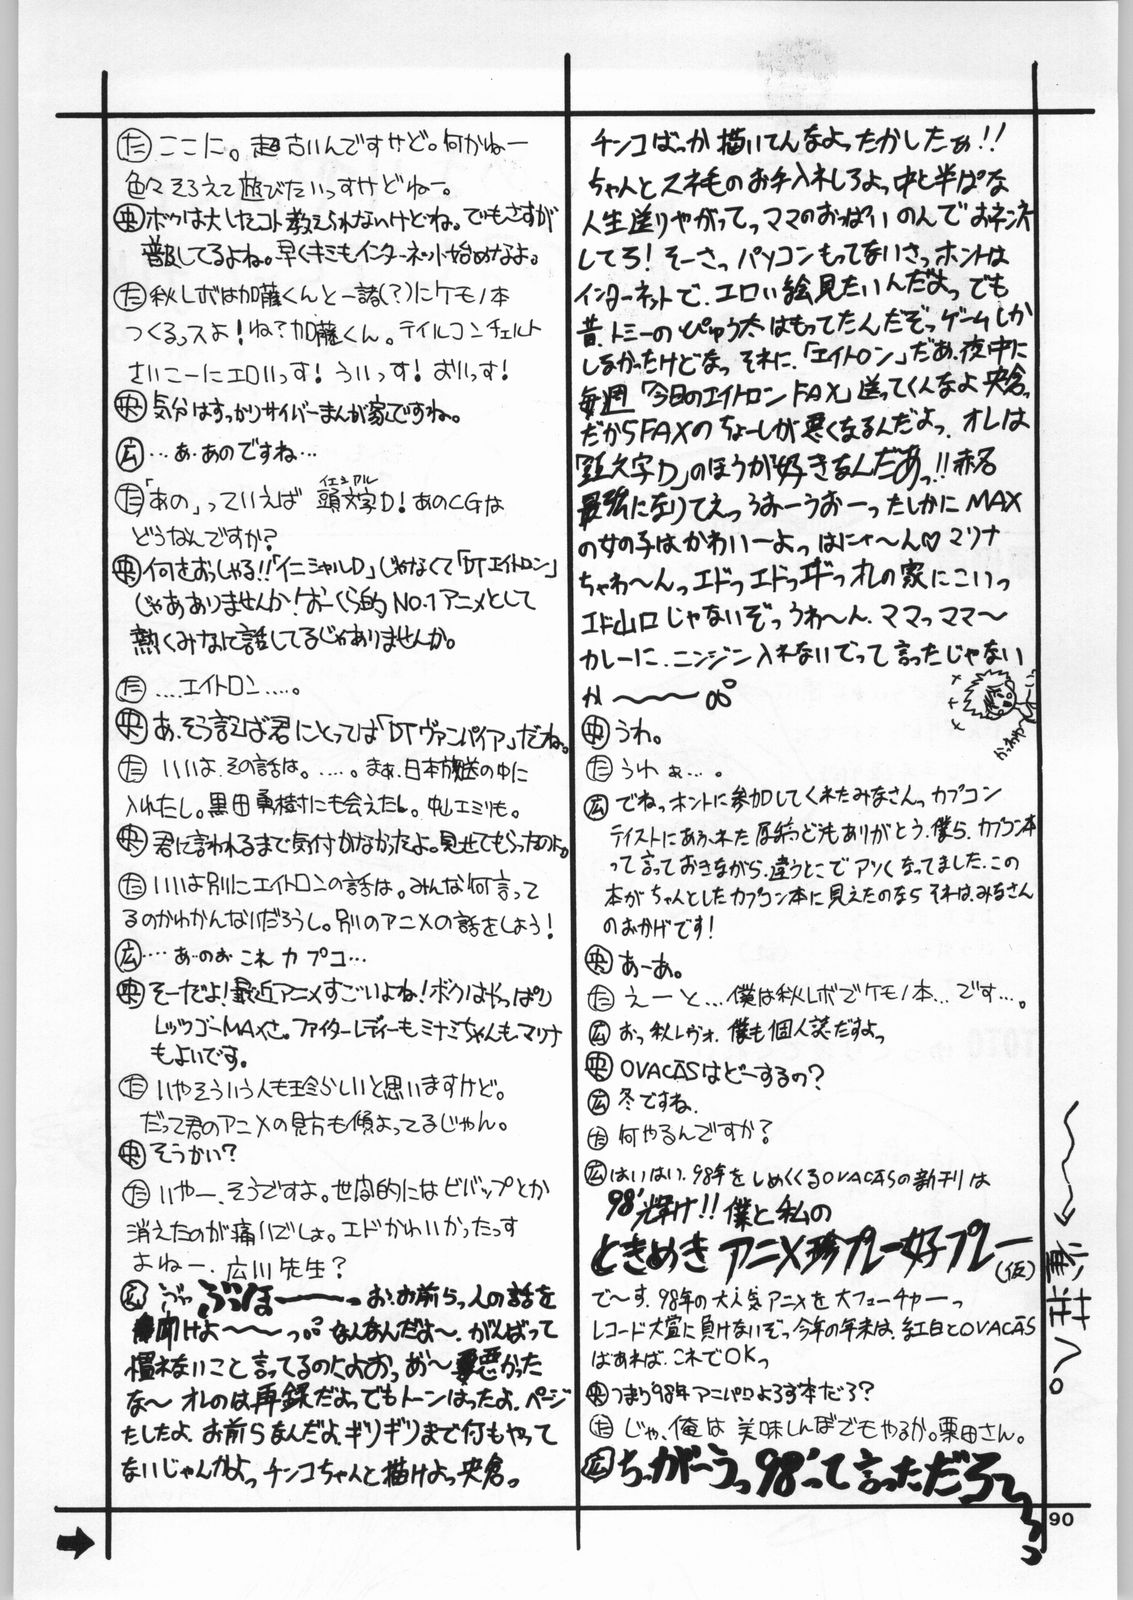 た ここに。超古いんですけど。何かねー
色々そろえて遊びたいっすけどねー。
央 ボクは大したコト教えられないけどね。でもさすが
普及してるよね。早くキミもインターネット始めなよ。
た 秋レボは加藤くんと一緒(?)にケモノ本
つくるっスよ！ね？加藤くん。テイルコンチェルト
さいこーにエロいっす！ういっす！おいっす！
央 気分はすっかりサイバーまんが家ですね。
広 …あ、あのですね…
た 「あの」っていえば 頭文字D！あのCGは
イニシャル
どうなんですか？
央 何をおっしゃる!!「イニシャルD」じゃなくて「DTエイトロン」
じゃありませんか！おーくら的NO.1アニメとして
熱くみなに話してるじゃありませんか。
た ….エイトロン….。
央 あ、そう言えば君にとっては「DTヴァンパイア」だね。
た いいよ、その話は。……。まぁ、日本放送の中に
入れたし。黒田勇樹にも会えたし。中しエミリも。
央 君に言われるまで気付かなかったよ。見せてもらったのよ。
た いいよ別にエイトロンの話は。みんな何言って
るのかわかんないだろうし。別のアニメの話をしよう！
広 ‥‥あ‥のぉ これ カプコ…
央 そーだよ！最近アニメすごいよね！ボクはやっぱり
レッツゴーMAXさ。ファイターレディーもミナミちゃんも、マリナ
もよいです。
た いやそういう人も珍らしいと思いますけど。
だって君のアニメの見方も傾よってるじゃん。
央 そうかい？
た いやー、そうですよ。世間的にはビバップとか
消えたのが痛いでしょ。エドかわいかったっす
よねー、広川先生？
広 ぶっほーーーっ お、お前らっ人の話を
聞けよ～～～っ°° なんなんだよ～、がんばって
慣れないこと言ってるのによおっ、あ～悪かった
な～ オレのは再録だよっでもトーンはったよ、ページ
たしたよ、お前らなんだよ、ギリギリまで何もやって
ないじゃんかよっ チンコちゃんと描けよっ央倉っ
チンコばっか描いてんなよったかしたぁ!!
ちゃんとスネ毛のお手入れしろよっ中と半ぱな
人生送りやがってっママのおっぱいのんでおネンネ
してろ！そーさっ パソコンもってないさっホントは
インターネットで、エロい絵見たいんだよっでも
昔、トミーのぴゅう太はもってたんだぞっゲームしか
しなかったけどなっ それに、「エイトロン」だあ、夜中に
毎週「今日のエイトロンFAX」送ってくんなよ央倉っ
だからFAXのちょーしが悪くなるんだよっ オレは
「頭文字D」のほうが好きなんだあっ!!赤名
最強になりてえっ うおーうおーったしかにMAX
の女の子はかわいーよっ はにゃ～ん♡マリナ
ちゃわ～んっ エドっエドっエドっオレの家にこいっ
エド山口じゃないぞっうわ～ん、ママっママ～
カレーに、ニンジン入れないでって言ったじゃない
か～～～～°°
央 うわ。
た うわぁ…。
広 でねっホントに参加してくれたみなさんっカプコン
テイストにあふれた原稿っどうもありがとう、僕ら、カプコン本
って言っておきながら、違うとこでアツくなってました、この
本がちゃんとしたカプコン本に見えたのならそれは、みなさん
のおかげです！
央 あーあ。
た えーと…僕は秋レボでケモノ本…です…。
広 おっ秋レヴォ、僕も個人誌だすよっ
央 OVACASはどーするの？
広 冬ですね、
た 何やるんですか？
広 はいはい、98年をしめくくるOVACASの新刊は
98'輝け!!僕と私の
ときめきアニメ珍プレー好プレー
(仮)
で～す、98年の大人気アニメを大フューチャーっ
レコード大賞に負けないぞっ今年の年末は、紅白とOVACAS
があれば、これでOKっ
央 つまり'98年アニパロよろず本だろ？
た じゃ、俺は 美味しんぼでもやるか。栗田さん。
広 ちっが～うっ98'って言っただろ～っっっ
90